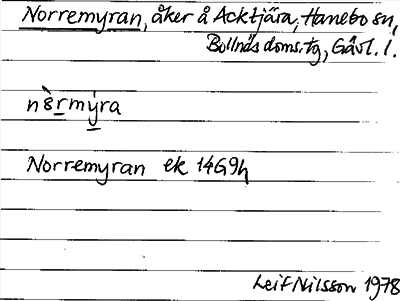 Norremyran, åker å Acktjära, Hanebo sn,
Bollnäs doms.tg, Gävl. l.
nὲrmýra
Norremyran ek 14G9h
Leif Nilsson 1978